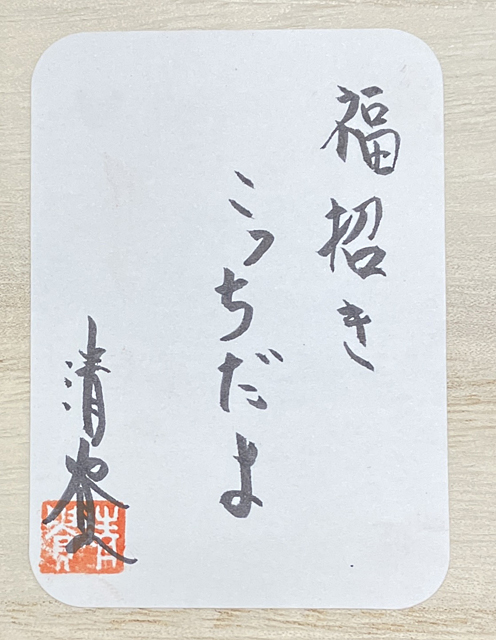 福招き
こっちだよ
清